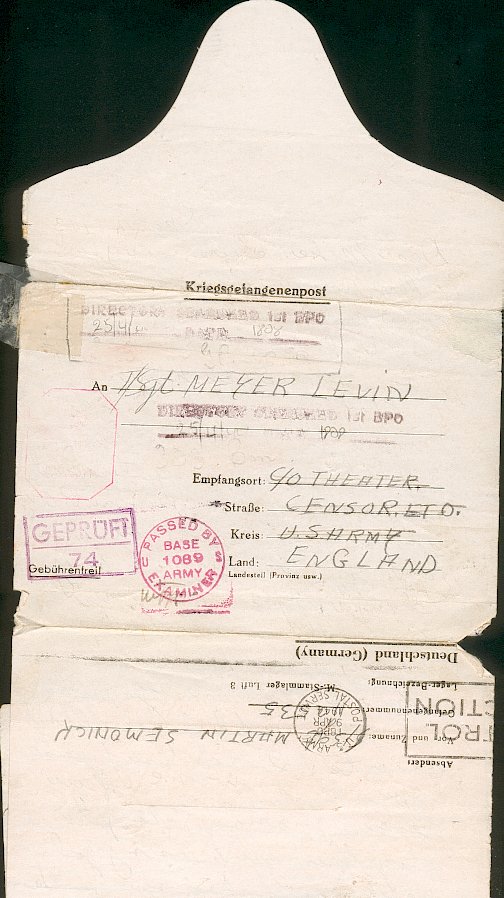 Kriegsgefangenenpost
DIRECTORY SEARCHED 1st BPO
DATE
1808
An T/Sgt. MEYER LEVIN
DIRECTORY SEARCHED 1st BPO
Empfangsort: C/O THEATER
Straße: CENSOR, ETO.
Kreis: U.S ARMY
Land: ENGLAND
Landesteil (Provinz usw.)
GEPRÜFT
74
Gebührenfrei!
PASSED BY
BASE
1089
ARMY
EXAMINER
U S
Deutschland (Germany)
M.-Stammlager Luft 3
Lager-Bezeichnung:
Gefangenennummer: 35
Vor- und Zuname: MARTIN SEMONICK
Absender:
U.S. ARMY
POSTAL SERVICE
9 APR
1944
TROL
CTION